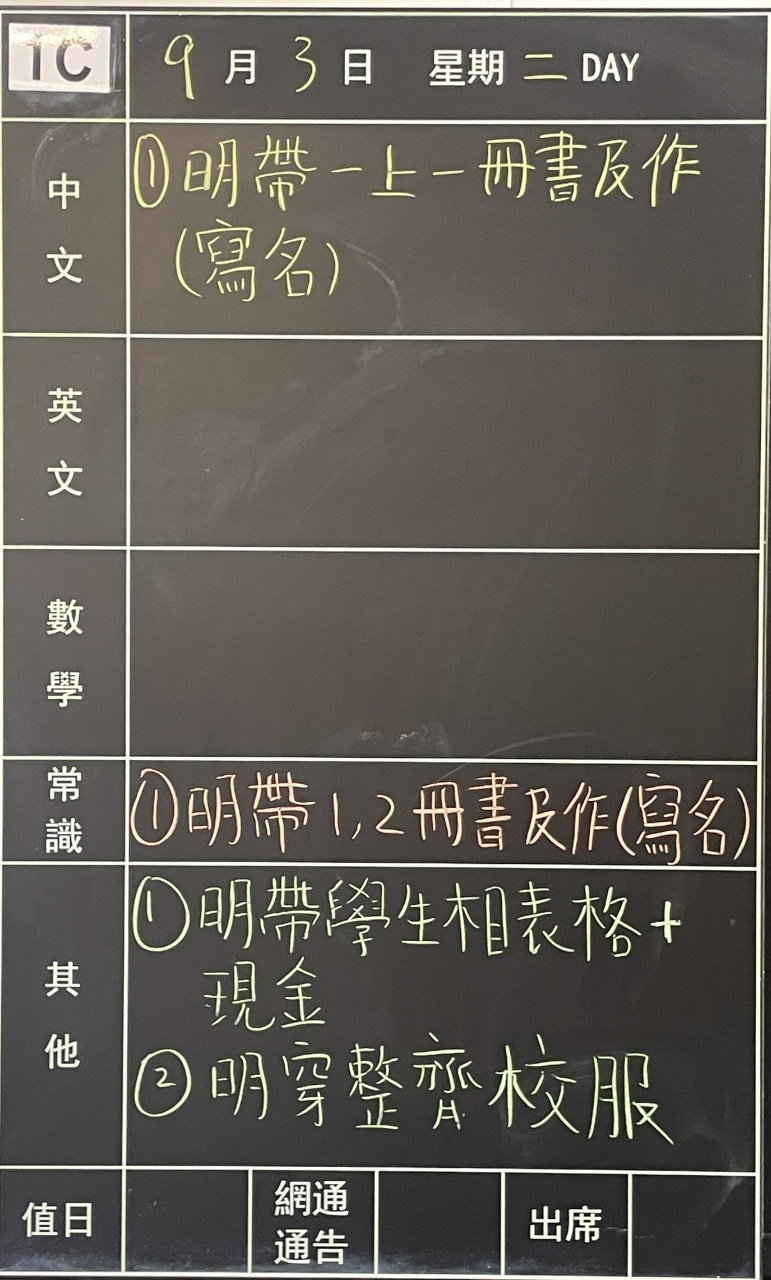 1C 9月3日 星期二DAY
中文
①明帶一上一冊書及作
(寫名)
英文
數學
常識
①明帶1,2冊書及作(寫名)
其他
①明帶學生相表格+
現金
②明穿整齊校服
值日
網通
通告
出席